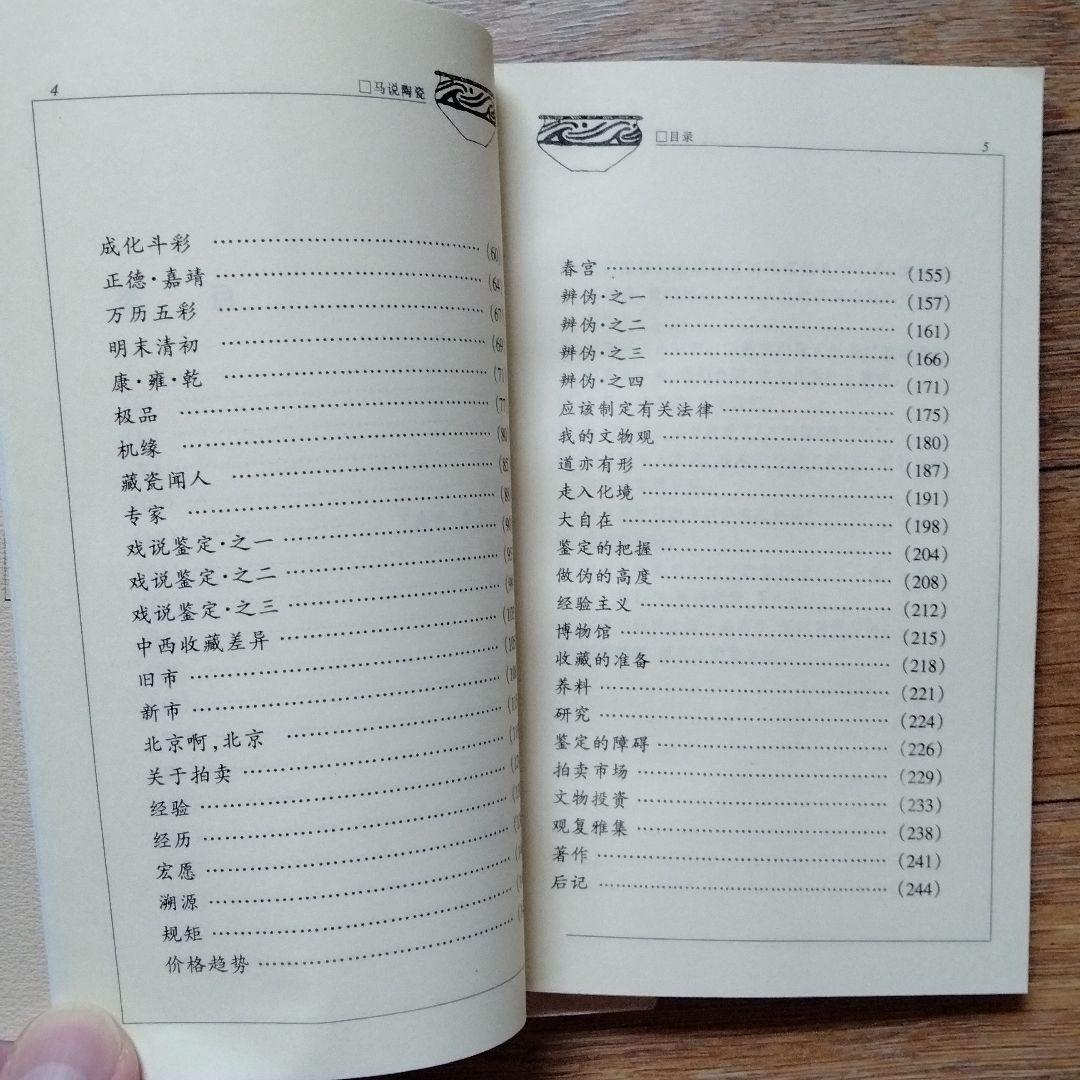 4
□马说陶瓷
成化斗彩 ………………………………(60
正德·嘉靖 ………………………………(64
万历五彩 ………………………………(67
明末清初 ………………………………(69
康·雍·乾 ………………………………(71
极品 ………………………………(77
机缘 ………………………………(80
藏瓷闻人 ………………………………(85
专家 ………………………………(8
戏说鉴定·之一 ………………………………(9
戏说鉴定·之二 ………………………………(95
戏说鉴定·之三 ………………………………(9
中西收藏差异 ………………………………(10
旧市 ………………………………(10
新市 ………………………………(10
北京啊,北京 ………………………………(11
关于拍卖 ………………………………(1
经验 ………………………………(1
经历 ………………………………(1
宏愿 ………………………………(
溯源 ………………………………(
规矩 ………………………………(
价格趋势 ………………………………
□目录
5
春宫 ………………………………(155)
辨伪·之一 ………………………………(157)
辨伪·之二 ………………………………(161)
辨伪·之三 ………………………………(166)
辨伪·之四 ………………………………(171)
应该制定有关法律 ………………………………(175)
我的文物观 ………………………………(180)
道亦有形 ………………………………(187)
走入化境 ………………………………(191)
大自在 ………………………………(198)
鉴定的把握 ………………………………(204)
做伪的高度 ………………………………(208)
经验主义 ………………………………(212)
博物馆 ………………………………(215)
收藏的准备 ………………………………(218)
养料 ………………………………(221)
研究 ………………………………(224)
鉴定的障碍 ………………………………(226)
拍卖市场 ………………………………(229)
文物投资 ………………………………(233)
观复雅集 ………………………………(238)
著作 ………………………………(241)
后记 ………………………………(244)